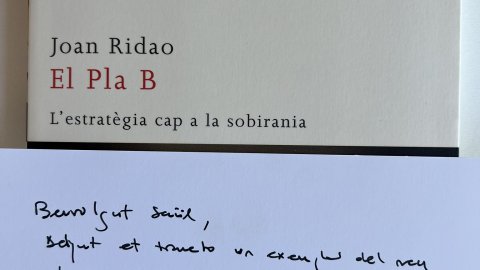 Joan Ridao
El Pla B
L'estratègia cap a la sobirania
Benvolgut Saül,
Adjunt et trameto un exemplar del meu